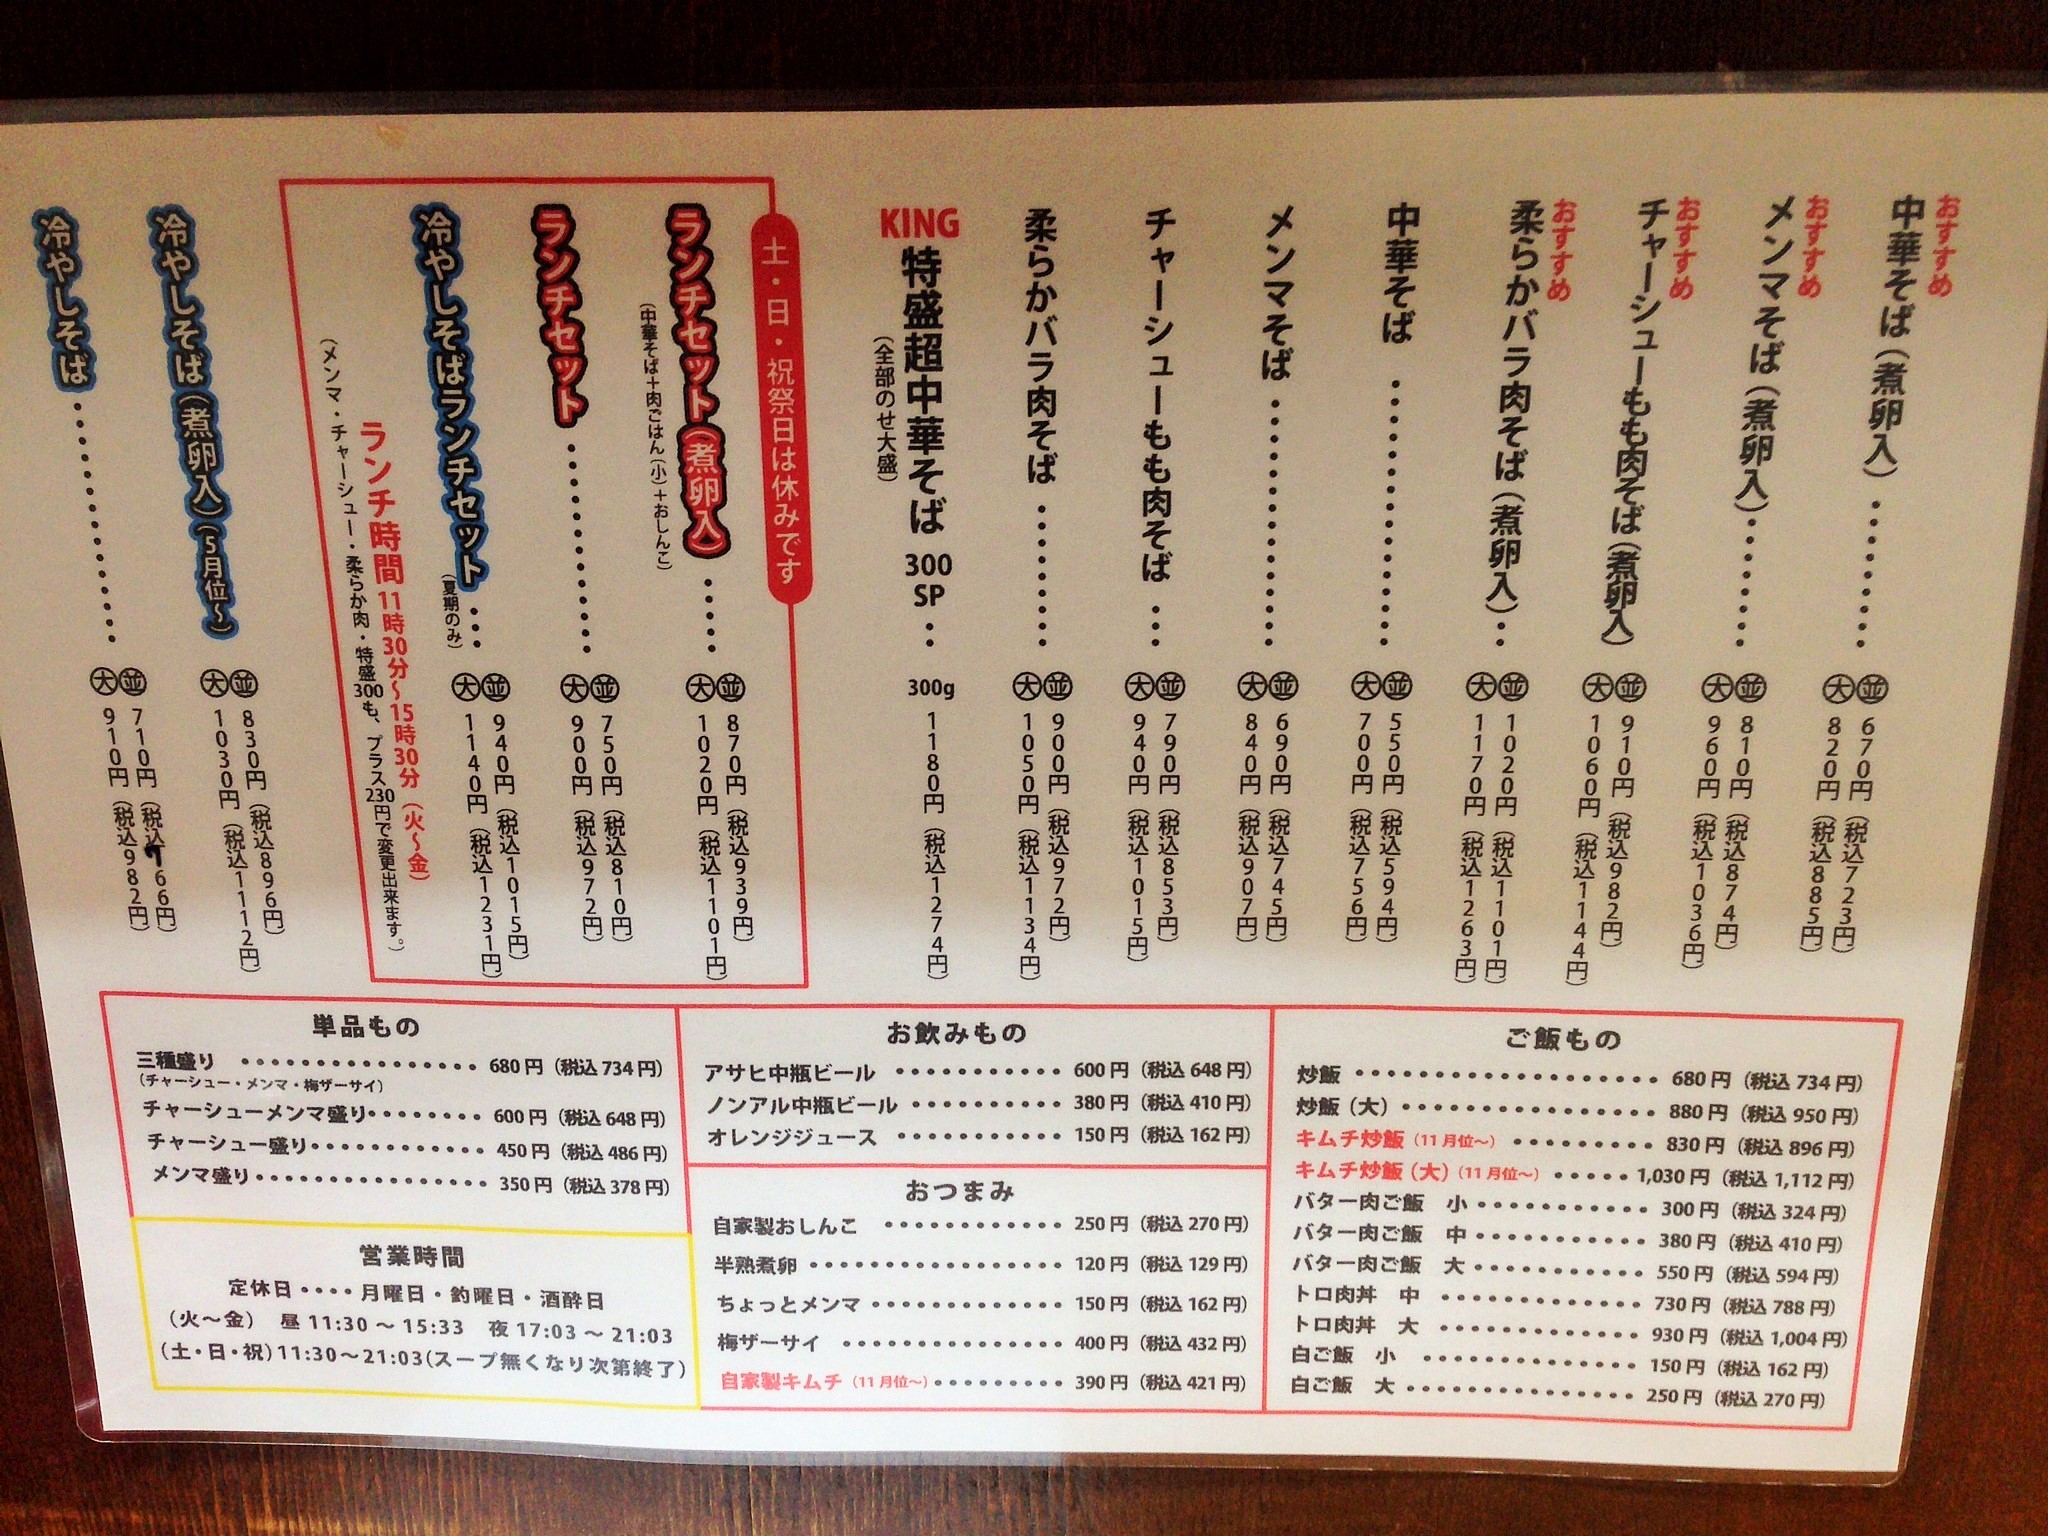 おすすめ
中華そば（煮卵入）・・・・・・・・
㊅並 670円（税込723円）
㊅大 820円（税込885円）
おすすめ
メンマそば（煮卵入）・・・・・・・
並 810円（税込874円）
大 960円（税込1036円）
おすすめ
チャーシューもも肉そば（煮卵入）
並 910円（税込982円）
大 1060円（税込1144円）
おすすめ
柔らかバラ肉そば（煮卵入）・・
並 1020円（税込1101円）
大 1170円（税込1263円）
中華そば ・・・・・・・・・・・・・・
並 550円（税込594円）
大 700円（税込756円）
メンマそば・・・・・・・・・・・・・
並 690円（税込745円）
大 840円（税込907円）
チャーシューもも肉そば ・・・
並 790円（税込853円）
大 940円（税込1015円）
柔らかバラ肉そば ・・・・・・・・
並 900円（税込972円）
大 1050円（税込1134円）
KING 特盛超中華そば 300 SP ・・ 300g 1180円（税込1274円）
（全部のせ大盛）
土・日・祝祭日は休みです
ランチセット（煮卵入）・・・・
並 870円（税込939円）
大 1020円（税込1101円）
（中華そば＋肉ごはん（小）＋おしんこ）
ランチセット ・・・・・・・・・・
並 750円（税込810円）
大 900円（税込972円）
冷やしそばランチセット ・・・
（夏期のみ）
並 940円（税込1015円）
大 1140円（税込1231円）
ランチ時間 11時30分～15時30分（火～金）
（メンマ・チャーシュー・柔らか肉・特盛300も、プラス230円で変更出来ます。）
冷やしそば（煮卵入）（5月位～）
並 830円（税込896円）
大 1030円（税込1112円）
冷やしそば ・・・・・・・・・・・・
並 710円（税込766円）
大 910円（税込982円）
単品もの
三種盛り ・・・・・・・・・・・・・・・ 680円（税込734円）
（チャーシュー・メンマ・梅ザーサイ）
チャーシューメンマ盛り・・・・・・・・ 600円（税込648円）
チャーシュー盛り・・・・・・・・・・・・ 450円（税込486円）
メンマ盛り・・・・・・・・・・・・・・・・ 350円（税込378円）
営業時間
定休日・・・・月曜日・釣曜日・酒酔日
（火～金） 昼 11:30 ～ 15:33 夜 17:03 ～ 21:03
（土・日・祝）11:30～21:03（スープ無くなり次第終了）
お飲みもの
アサヒ中瓶ビール ・・・・・・・・・・・ 600円（税込648円）
ノンアル中瓶ビール ・・・・・・・・・・ 380円（税込410円）
オレンジジュース ・・・・・・・・・・・ 150円（税込162円）
おつまみ
自家製おしんこ ・・・・・・・・・・・・ 250円（税込270円）
半熟煮卵 ・・・・・・・・・・・・・・・・・ 120円（税込129円）
ちょっとメンマ ・・・・・・・・・・・・・ 150円（税込162円）
梅ザーサイ ・・・・・・・・・・・・・・・ 400円（税込432円）
自家製キムチ（11月位～）・・・・・・・・・ 390円（税込421円）
ご飯もの
炒飯 ・・・・・・・・・・・・・・・・・・・・ 680円（税込734円）
炒飯（大）・・・・・・・・・・・・・・・・・ 880円（税込950円）
キムチ炒飯（11月位～） ・・・・・・・・・・ 830円（税込896円）
キムチ炒飯（大）（11月位～） ・・・・・ 1,030円（税込1,112円）
バター肉ご飯 小 ・・・・・・・・・・・・ 300円（税込324円）
バター肉ご飯 中 ・・・・・・・・・・・・ 380円（税込410円）
バター肉ご飯 大 ・・・・・・・・・・・・ 550円（税込594円）
トロ肉丼 中 ・・・・・・・・・・・・・・ 730円（税込788円）
トロ肉丼 大 ・・・・・・・・・・・・・・ 930円（税込1,004円）
白ご飯 小 ・・・・・・・・・・・・・・・ 150円（税込162円）
白ご飯 大 ・・・・・・・・・・・・・・・・ 250円（税込270円）